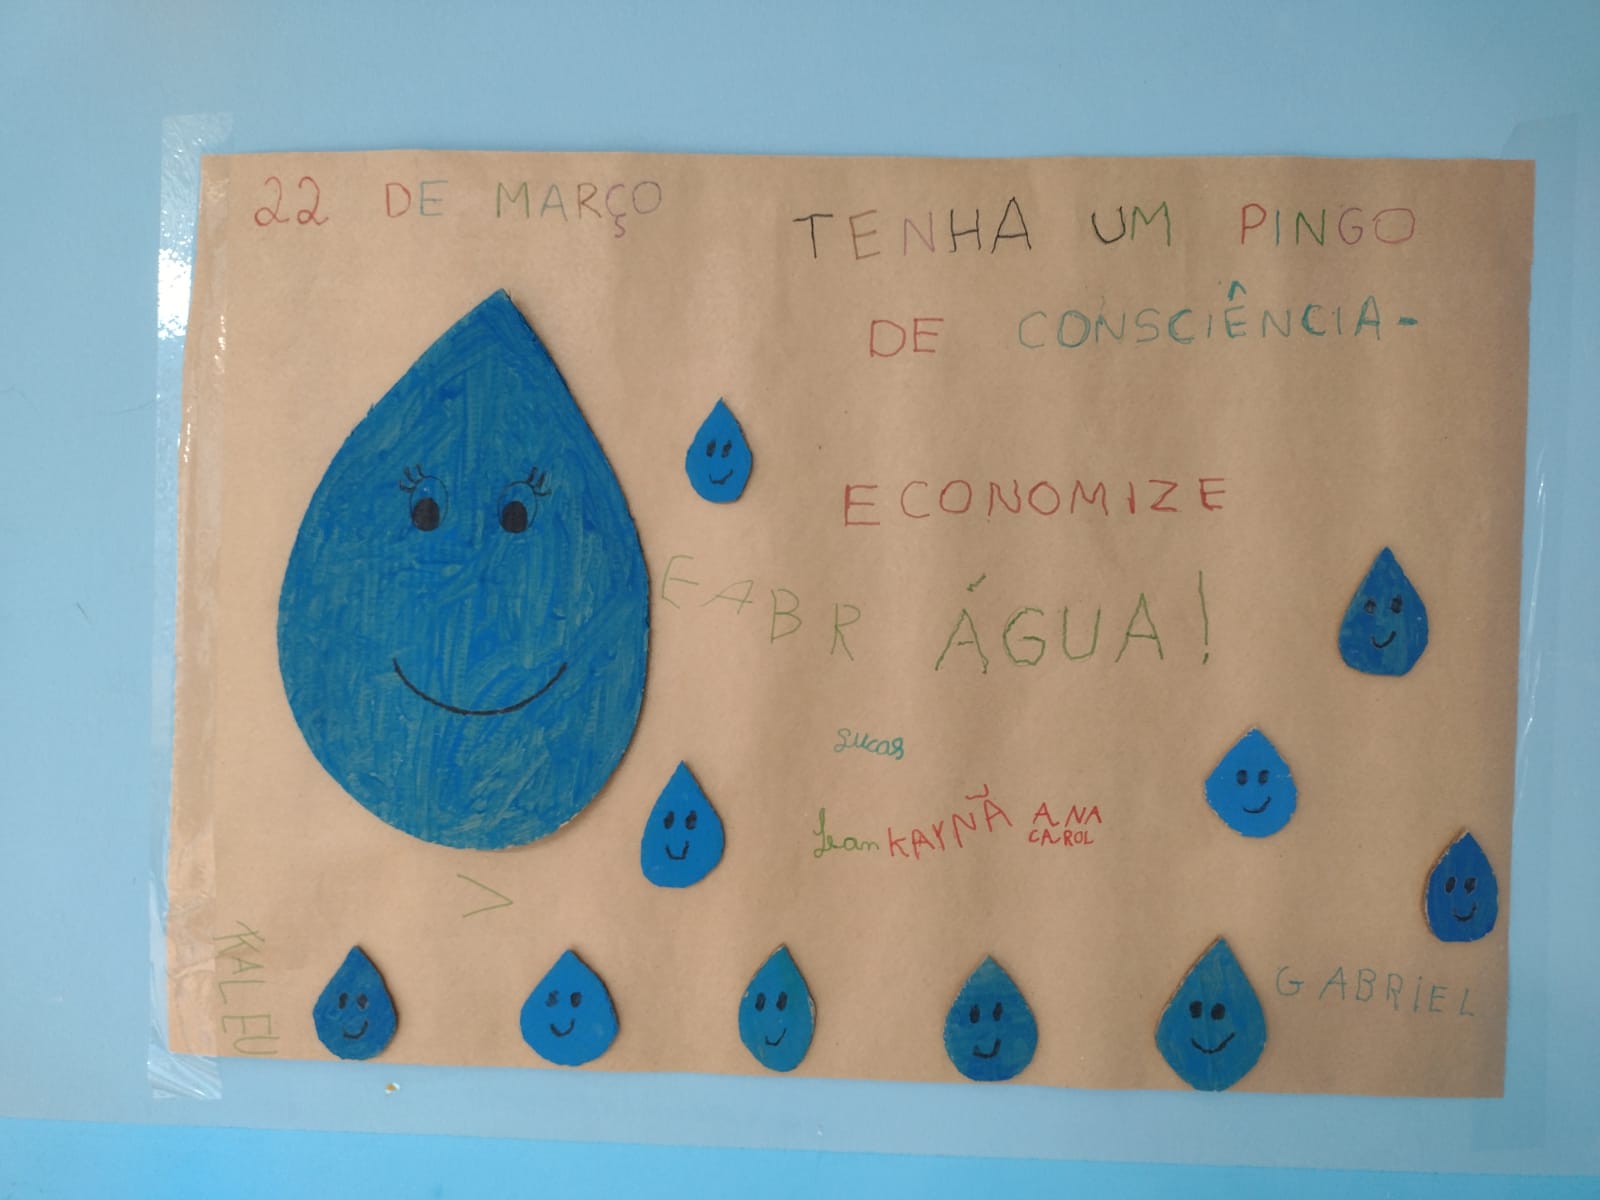 22 DE MARÇO
TENHA UM PINGO
DE CONSCIÊNCIA-
ECONOMIZE
EABR ÁGUA!
Lucas
Jean KAYNÃ ANA
CAROL
KALEU
GABRIEL